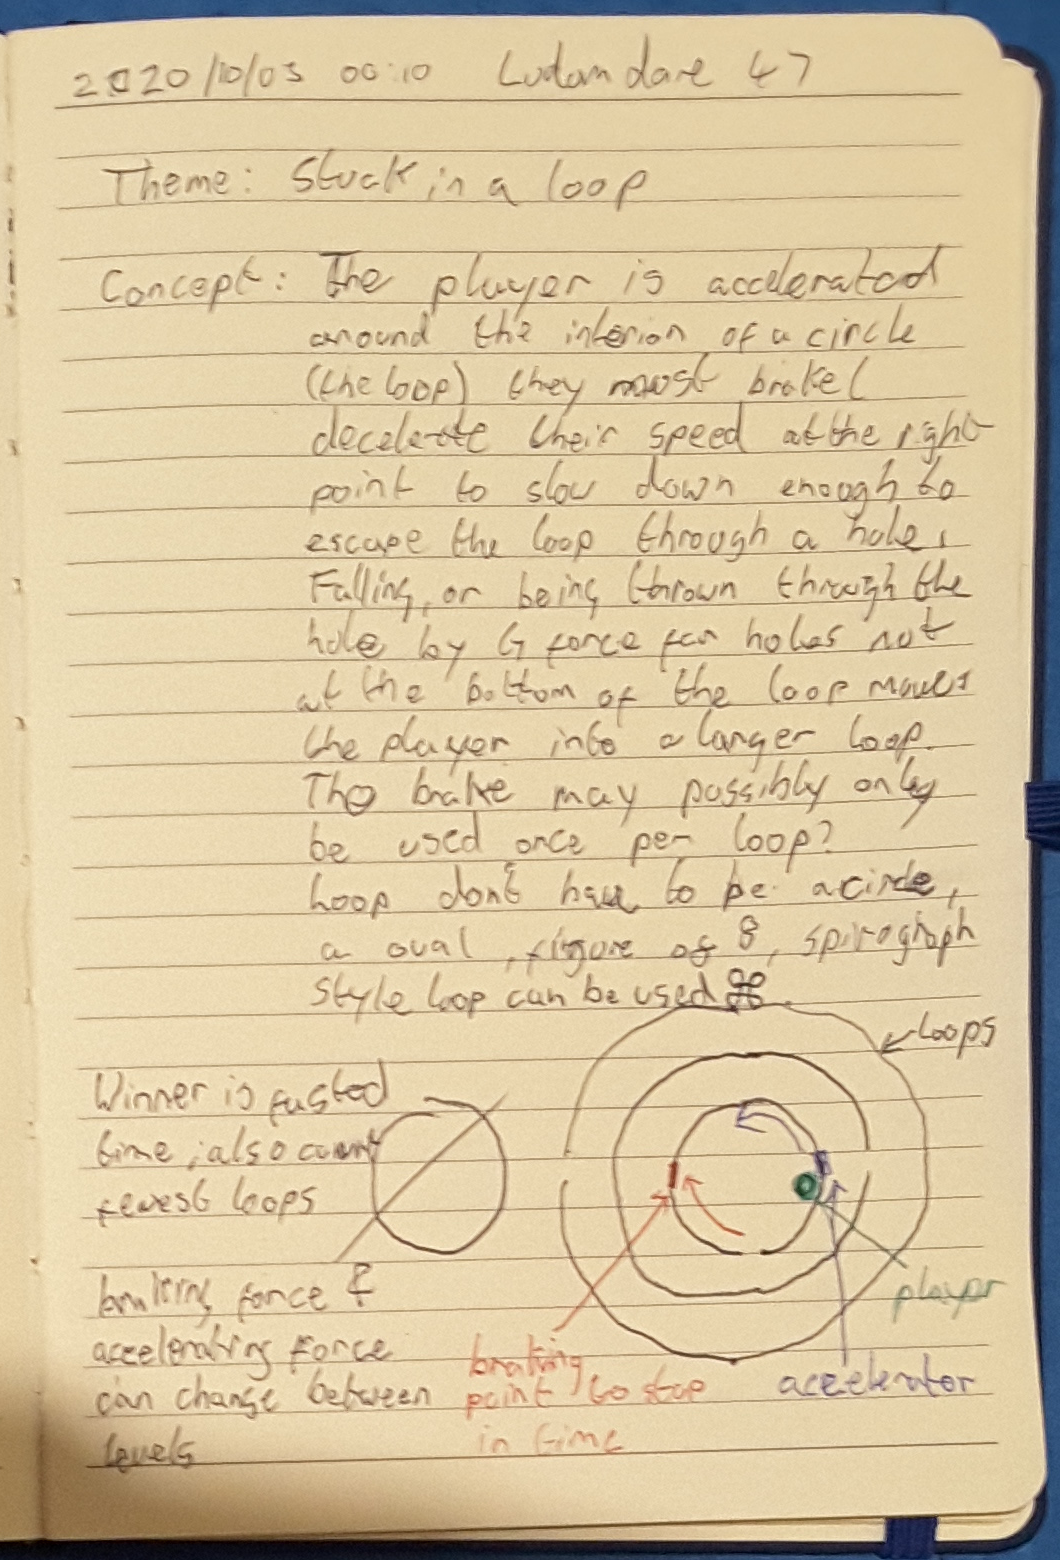 2020/10/03 00:10 Ludam dare 47
Theme: Stuck in a loop
Concept: The player is accelerated
around the interior of a circle
(the loop) they must brake (
decelerate their speed at the right
point to slow down enough to
escape the loop through a hole.
Falling, or being thrown through the
hole by G force for holes not
at the bottom of the loop moves
the player into a larger loop.
The brake may possibly only
be used once per loop?
Loop don't have to be a circle,
a oval, figure of 8, spirograph
style loop can be used ⌘.
Loops
Winner is fasted
time, also count
fewest loops
braking force &
accelerating force
can change between
levels
braking
point to stop
in time
accelerator
player